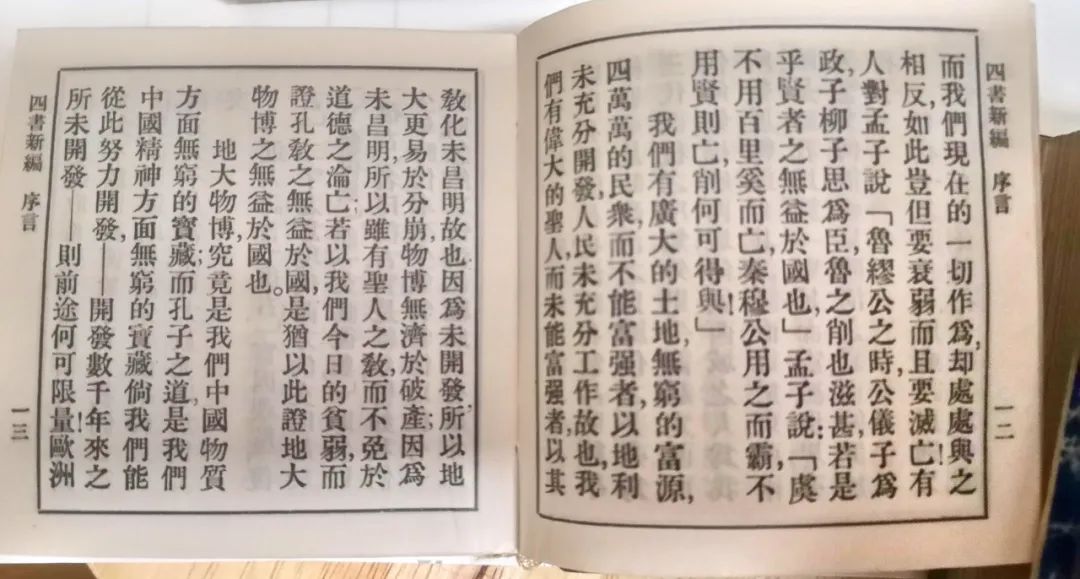 四書新編 序言 一二
而我們現在的一切作爲,却處處與之
相反,如此豈但要衰弱而且要滅亡!有
人對孟子說「魯繆公之時,公儀子爲
政,子柳子思爲臣,魯之削也滋甚;若是
乎賢者之無益於國也」孟子說:「虞
不用百里奚而亡,秦穆公用之而霸,不
用賢則亡,削何可得與」
我們有廣大的土地,無窮的富源,
四萬萬的民衆,而不能富强者,以地利
未充分開發,人民未充分工作故也,我
們有偉大的聖人,而未能富强者,以其
敎化未昌明故也.因爲未開發,所以地
大更易於分崩,物博無濟於破產;因爲
未昌明,所以雖有聖人之敎而不免於
道德之淪亡;若以我們今日的貧弱,而
證孔敎之無益於國,是猶以此證地大
物博之無益於國也。
地大物博,究竟是我們中國物質
方面無窮的寶藏;而孔子之道,是我們
中國精神方面無窮的寶藏倘我們能
從此努力開發,——開發數千年來之
所未開發——則前途何可限量!歐洲
四書新編 序言 一三